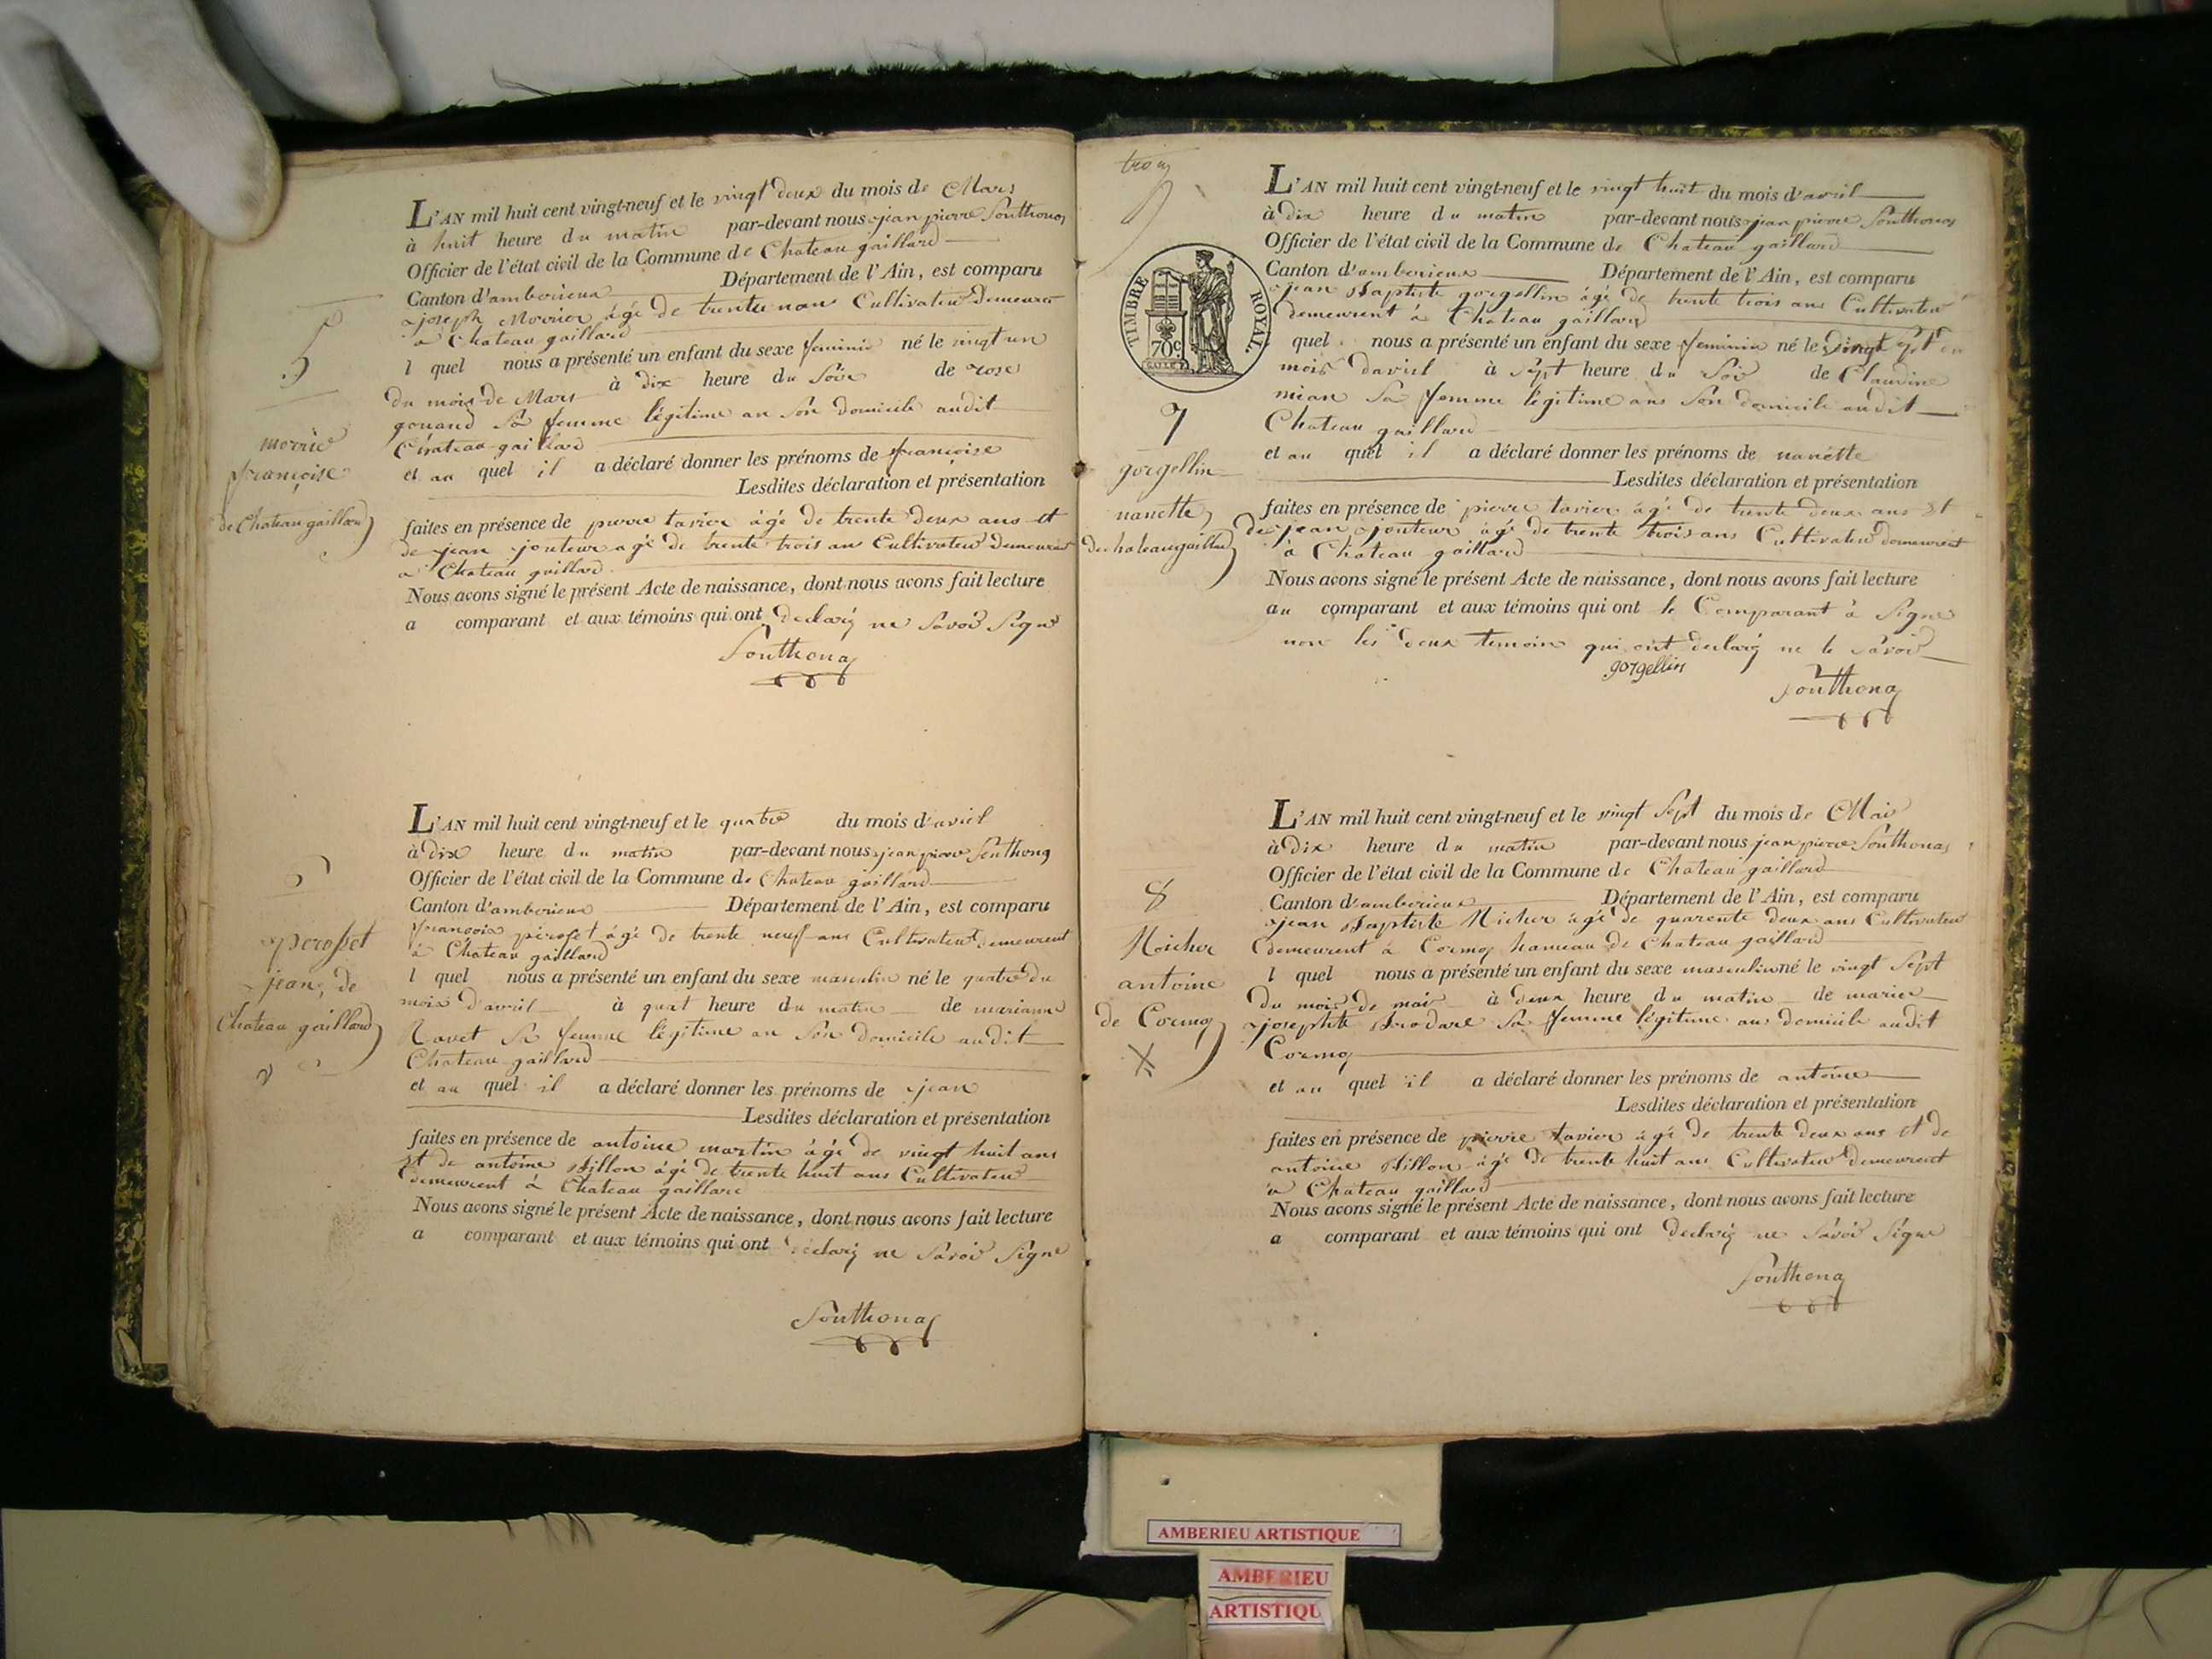 L'AN mil huit cent vingt-neuf et le vingt deux du mois de Mars
à huit heure du matin par-devant nous jean pierre Southonas
Officier de l'état civil de la Commune de Chateau gaillard
Canton d'amberieux Département de l'Ain, est comparu
joseph Morrier âgé de trente Cultivateur Demeurent
à Chateau gaillard
l quel nous a présenté un enfant du sexe feminin né le vingt un
du mois de Mars à dix heure du Soir de rose
gouand Sa femme légitime an Son domicile audit
Chateau gaillard
et au quel il a déclaré donner les prénoms de françoise
Lesdites déclaration et présentation
faites en présence de pierre tavier âgé de trente deux ans et
de jean jouteur agé de trente trois ans Cultivateur Demeurent
a Chateau gaillard
Nous avons signé le présent Acte de naissance, dont nous avons fait lecture
a comparant et aux témoins qui ont declaré ne Savoir Signe
Southonas
5
morrier
françoise
de Chateau gaillard
L'AN mil huit cent vingt-neuf et le quatre du mois d'avril
à Dix heure du matin par-devant nous jean pierre Southonas
Officier de l'état civil de la Commune de Chateau gaillard
Canton d'amberieux Département de l'Ain, est comparu
françois perosset âgé de trente neuf ans Cultivateur demeurent
à Chateau gaillard
l quel nous a présenté un enfant du sexe masculin né le quatre du
mois d'avril à quat heure du matin de marianne
Ravet Sa femme légitime an Son domicile audit
Chateau gaillard
et au quel il a déclaré donner les prénoms de jean
Lesdites déclaration et présentation
faites en présence de antoine martin âgé de vingt huit ans
et de antoine Billon âgé de trente huit ans Cultivateur
demeurent à Chateau gaillard
Nous avons signé le présent Acte de naissance, dont nous avons fait lecture
a comparant et aux témoins qui ont déclaré ne Savoir Signe
Southonas
perosset
jean, de
Chateau gaillard
trois
TIMBRE ROYAL
70c
L'AN mil huit cent vingt-neuf et le vingt huit du mois d'avril
à Dix heure du matin par-devant nous jean pierre Southonas
Officier de l'état civil de la Commune de Chateau gaillard
Canton d'amberieux Département de l'Ain, est comparu
jean Baptiste gorgellin âgé de trente trois ans Cultivateur
demeurent à Chateau gaillard
quel nous a présenté un enfant du sexe feminin né le vingt sept du
mois davril à Sept heure du Soir de Claudine
mian Sa femme légitime ans Son domicile audit
Chateau gaillard
et au quel il a déclaré donner les prénoms de nanette
Lesdites déclaration et présentation
faites en présence de pierre tavier âgé de trente deux ans et
de jean jouteur âgé de trente trois ans Cultivateur demeurent
à Chateau gaillard
Nous avons signé le présent Acte de naissance, dont nous avons fait lecture
au comparant et aux témoins qui ont le Comparant à Signe
non les deux temoins qui ont declaré ne le Savoir
gorgellin
Southonas
7
gorgellin
nanette
de chateau gaillard
L'AN mil huit cent vingt-neuf et le vingt Sept du mois de Mai
à Dix heure du matin par-devant nous jean pierre Southonas
Officier de l'état civil de la Commune de Chateau gaillard
Canton d'amberieux Département de l'Ain, est comparu
jean Baptiste Nicher âgé de quarente deux ans Cultivateur
demeurent à Cormoz hameau de Chateau gaillard
l quel nous a présenté un enfant du sexe masculin né le vingt Sept
du mois de mai à deux heure du matin de marie
josephte Brodare Sa femme légitime au domicile audit
Cormoz
et au quel il a déclaré donner les prénoms de antoine
Lesdites déclaration et présentation
faites en présence de pierre tavier âgé de trente deux ans et de
antoine Billon âgé de trente huit ans Cultivateur demeurent
a Chateau gaillard
Nous avons signé le présent Acte de naissance, dont nous avons fait lecture
a comparant et aux témoins qui ont declaré ne Savoir Signe
Southonas
8
Noicher
antoine
de Cormoz
AMBERIEU ARTISTIQUE
AMBERIEU
ARTISTIQU